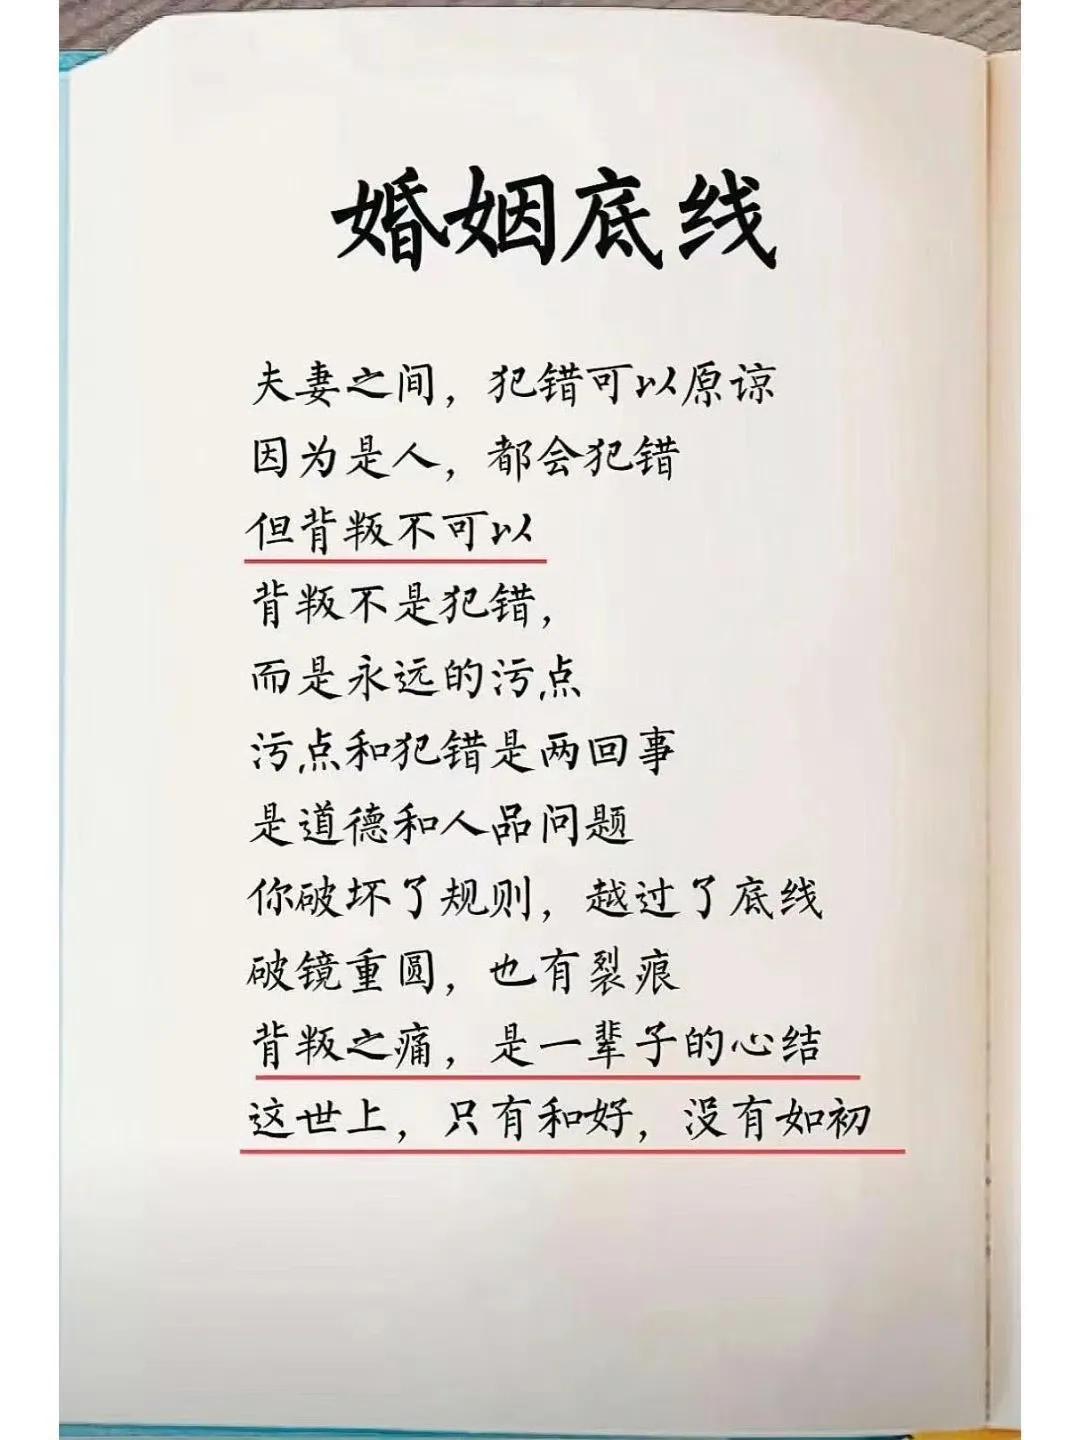 婚姻底线
夫妻之间，犯错可以原谅
因为是人，都会犯错
但背叛不可以
背叛不是犯错，
而是永远的污点
污点和犯错是两回事
是道德和人品问题
你破坏了规则，越过了底线
破镜重圆，也有裂痕
背叛之痛，是一辈子的心结
这世上，只有和好，没有如初